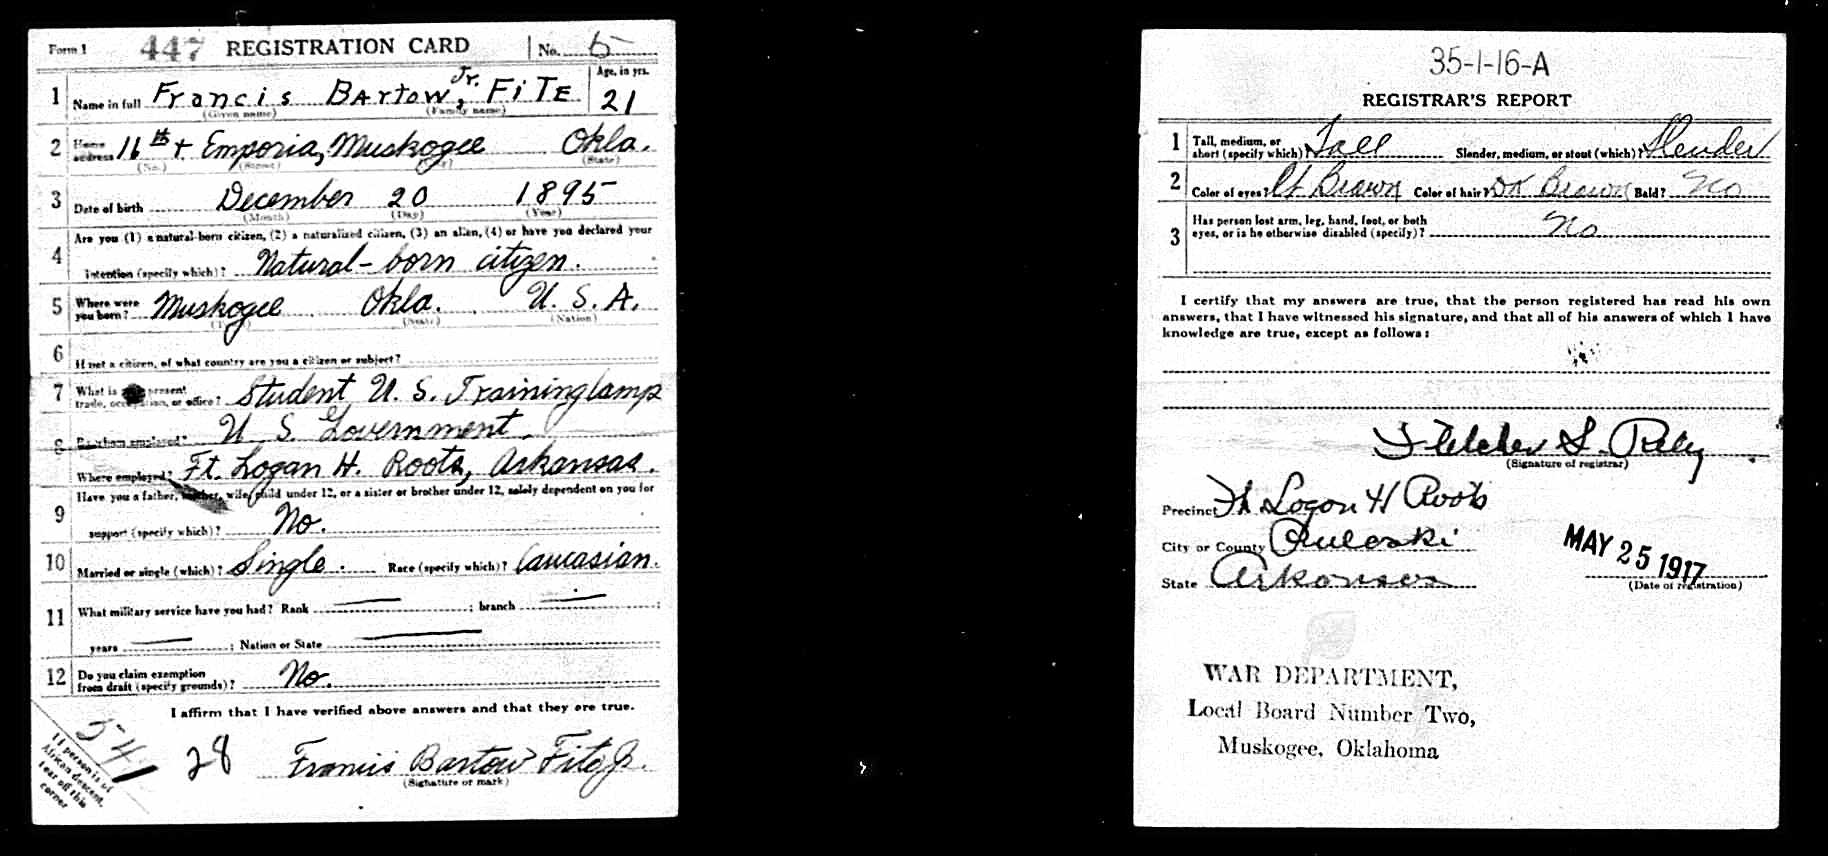 Form 1 447 REGISTRATION CARD No. 5
1 Name in full Francis Bartow, Jr. FiTE Age, in yrs. 21
(Given name) (Family name)
2 Home address 16th + Emporia, Muskogee Okla.
(No.) (Street) (City) (State)
3 Date of birth December 20 1895
(Month) (Day) (Year)
4 Are you (1) a natural-born citizen, (2) a naturalized citizen, (3) an alien, (4) or have you declared your
intention (specify which)? Natural-born citizen.
5 Where were you born? Muskogee Okla. U.S.A.
(Town) (State) (Nation)
6 If not a citizen, of what country are you a citizen or subject?
7 What is present
trade, occupation, or office? Student U.S. Training Camp
8 By whom employed? U S Government.
Where employed? Ft. Logan H. Roots, Arkansas.
9 Have you a father, mother, wife, child under 12, or a sister or brother under 12, solely dependent on you for
support (specify which)? No.
10 Married or single (which)? Single. Race (specify which)? Caucasian.
11 What military service have you had? Rank ; branch ;
years ; Nation or State
12 Do you claim exemption
from draft (specify grounds)? No.
I affirm that I have verified above answers and that they are true.
541 28 Francis Bartow Fite Jr.
(Signature or mark)
If person is of
African descent,
tear off this
corner
35-1-16-A
REGISTRAR'S REPORT
1 Tall, medium, or
short (specify which)? Tall Slender, medium, or stout (which)? Slender
2 Color of eyes? Lt Brown Color of hair? DK Brown Bald? No
3 Has person lost arm, leg, hand, foot, or both
eyes, or is he otherwise disabled (specify)? No
I certify that my answers are true, that the person registered has read his own
answers, that I have witnessed his signature, and that all of his answers of which I have
knowledge are true, except as follows:
Fletcher S. Riley
(Signature of registrar)
Precinct Ft Logan H Roots
City or County Pulaski
State Arkansas
MAY 25 1917
(Date of registration)
WAR DEPARTMENT,
Local Board Number Two,
Muskogee, Oklahoma